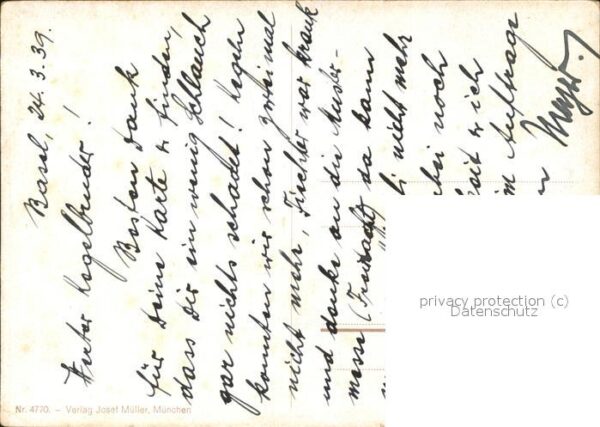 Basel, 24.3.39.
Guter Kegelbruder!
Besten Dank
für Deine Karte & finden,
dass Dir ein wenig Schlauch
gar nichts schadet! Kegeln
konnten wir schon zweimal
nicht mehr, Tischler war krank
und danke an die Muster-
messe (Freinacht) da kann
nicht mehr
bei noch
ich
im Auftrage
Meyer.
Nr. 4770. – Verlag Josef Müller, München
privacy protection (c)
Datenschutz